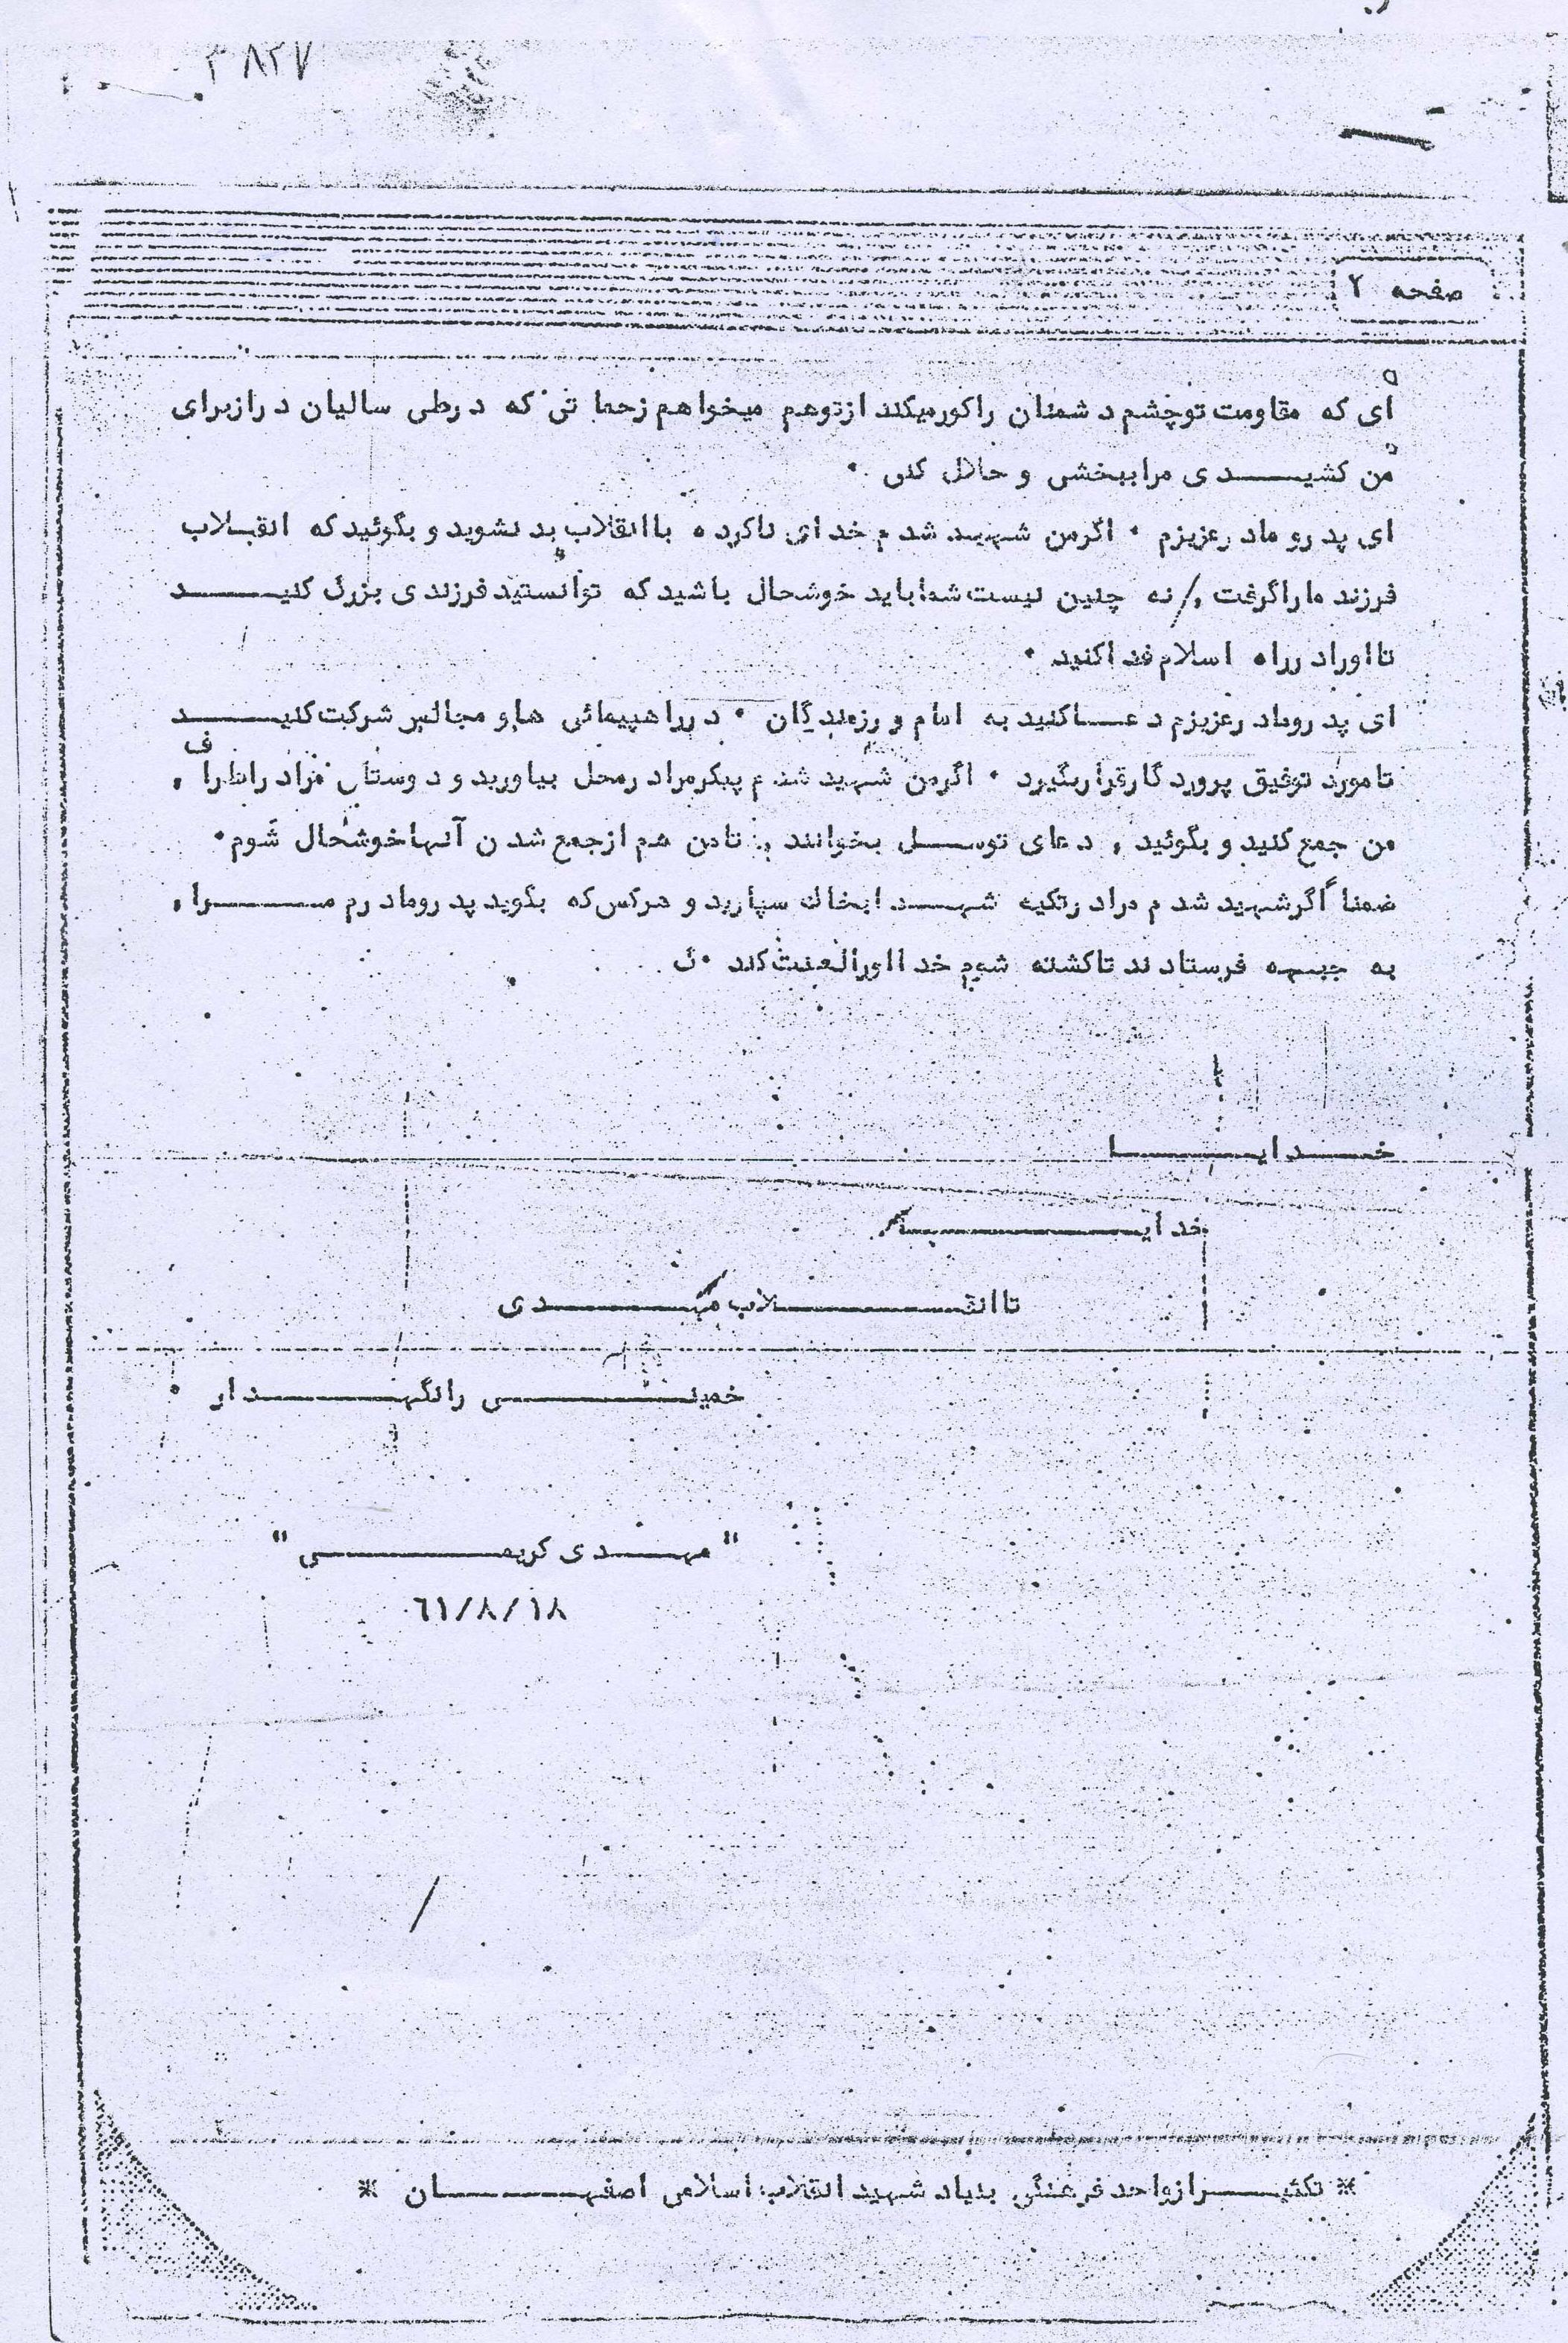 ۳۸۲۷
صفحه ۲
ای که مقاومت تو چشم دشمنان را کور میکند از تو هم میخواهم زحماتی که در طی سالیان دراز برای
من کشیدی مرا ببخشی و حلال کنی .
ای پدر و مادر عزیزم . اگر من شهید شدم خدای ناکرده با انقلاب بد نشوید و بگوئید که انقلاب
فرزند ما را گرفت , نه چنین نیست شما باید خوشحال باشید که توانستید فرزندی بزرگ کنید
تا او را در راه اسلام فدا کنید .
ای پدر و مادر عزیزم دعا کنید به امام و رزمندگان . در راهپیمائی ها و مجالس شرکت کنید
تا مورد توفیق پروردگار قرار بگیرد . اگر من شهید شدم پیکر مرا در محل بیاورید و دوستان مرا در اطراف ,
من جمع کنید و بگوئید , دعای توسل بخوانند , تا من هم از جمع شدن آنها خوشحال شوم .
ضمناً اگر شهید شدم مرا در تکیه شهدا بخاک سپارید و هرکس که بگوید پدر و مادرم مرا ,
به جبهه فرستادند تا کشته شوم خدا او را لعنت کند .
خدایا
خدایا
تا انقلاب مهدی
خمینی را نگهدار .
"مهدی کریمی"
۶۱/۸/۱۸
* تکثیر از واحد فرهنگی بنیاد شهید انقلاب اسلامی اصفهان *